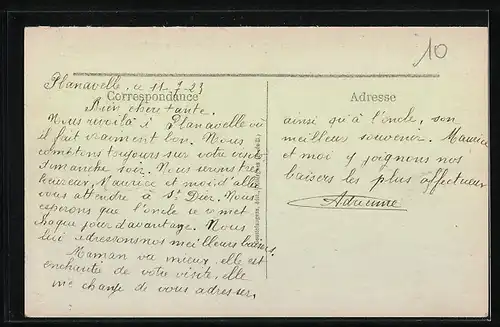 10
Planavelle, ce 11-7-23
Correspondance
Adresse
Bien chère tante.
Nous revoilà à Planavelle où
il fait vraiment bon. Nous
comptons toujours sur votre visite
Dimanche soir. Nous serons très
heureux, Maurice et moi d'aller
vous attendre à St Dier. Nous
espérons que l'oncle se remet
chaque jour davantage. Nous
lui adressons nos meilleurs baisers.
Maman va mieux, elle est
enchantée de votre visite, elle
me charge de vous adresser,
ainsi qu'à l'oncle, son
meilleur souvenir. Maurice
et moi y joignons nos
baisers les plus affectueux
Adrienne